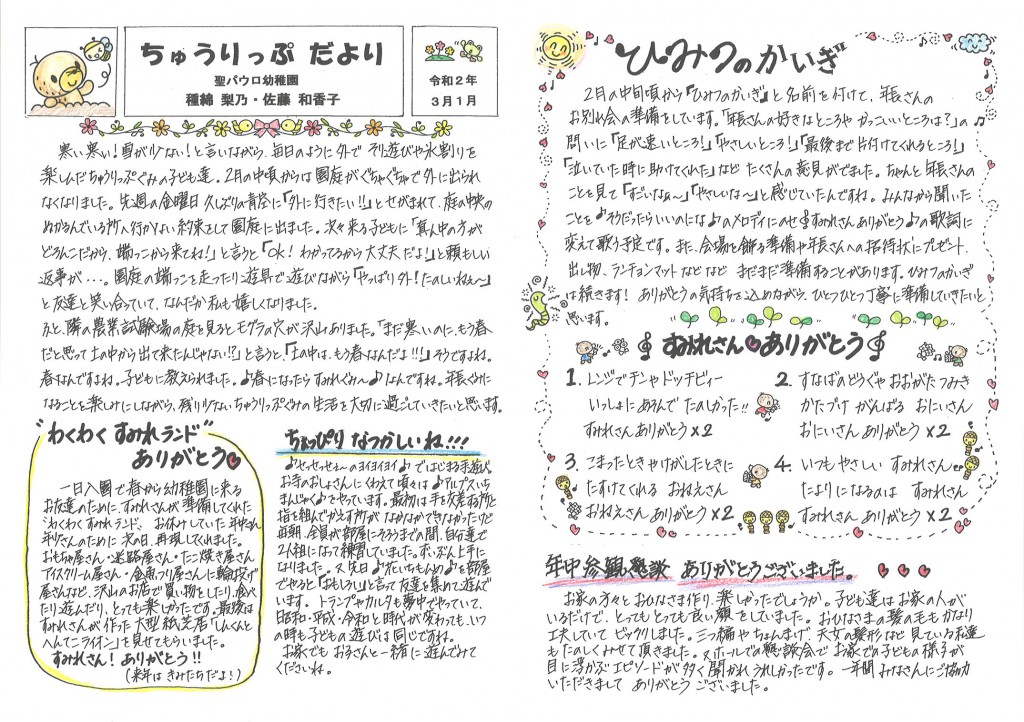 ちゅうりっぷ だより
聖パウロ幼稚園
種綿 梨乃・佐藤 和香子
令和２年
３月１日
寒い寒い！雪が少ない！と言いながら、毎日のように外で そり遊びや氷割りを
楽しんだちゅうりっぷぐみの子ども達。2月の中頃からは園庭がぐちゃぐちゃで外に出られ
なくなりました。先週の金曜日 久しぶりの青空に「外に行きたい!!」とせがまれて、庭の中央の
ぬかるんでいる所へ行かない約束をして園庭に出ました。次々来る子どもに「真ん中の方が
どろんこだから、端っこから来てね！」と言うと「OK！わかってるから大丈夫だよ!」と頼もしい
返事が…。園庭の端っこを走ったり遊具で遊びながら「やっぱり外！たのしいねぇ〜」
と友達と笑い合っていて、なんだか私も嬉しくなりました。
ふと、隣の農業試験場の庭を見るとモグラの穴が沢山ありました。「まだ寒いのに、もう春
だと思って土の中から出て来たんじゃない!?」と言うと、「土の中は、もう春なんだよ!!」そうですよね。
春なんですよね。子どもに教えられました。♪春になったら すみれぐみ〜♪なんですね。年長ぐみに
なることを楽しみにしながら、残り少ないちゅうりっぷぐみの生活を大切に過ごしていきたいと思います。
"わくわく すみれランド"
ありがとう
一日入園で春から幼稚園に来る
お友達のために、すみれさんが準備してくれた
「わくわくすみれランド」、お休みしていた年中さん
年少さんのために 次の日、再現してくれました。
おもちゃ屋さん・迷路屋さん・たこ焼き屋さん
アイスクリーム屋さん・金魚つり屋さんに輪投げ
屋さんなど、沢山のお店で買い物をしたり、食べ
たり遊んだり、とっても楽しかったです。最後は
すみれさんが作った大型紙芝居「しんくんと
へんてこライオン」を見せてもらいました。
すみれさん！ありがとう!!
(来年は きみたちだよ！)
ちょっぴり なつかしいね!!!
♪せっせっせぇ〜のヨイヨイヨイ♪ではじまる手遊び。
お寺のおしょうさんにくわえて頃々は♪アルプスいち
まんじゃく♪でやっています。最初は手を交差する所と
指を組んでかえす所が なかなかできなかったけど
毎朝、全員が部屋にそろうまでの間、自分達で
2人組になって練習していました。ずいぶん上手に
なりました。又、先日 ♪はないちもんめ♪を部屋
でやると「おもしろい」と言って友達を集めて遊んで
います。トランプやカルタも夢中でやっていて、
昭和・平成・令和と時代が変わっても、いつ
の時も子どもの遊びは同じですね。
お家でも お子さんと一緒に遊んでみて
くださいね。
ひみつのかいぎ
2月の中旬頃から「ひみつのかいぎ」と名前を付けて、年長さんの
お別れ会の準備をしています。「年長さんの好きなところや かっこいいところは？」の
問いに「足が速いところ！」「やさしいところ！」「最後まで片付けてくれるところ！」
「泣いていた時に助けてくれた」など たくさんの意見がでました。ちゃんと年長さんの
ことを見て「すごいなぁ〜」「やさしいな〜」と感じていたんですね。みんなから聞いた
ことを♪そうだったらいいのにな♪のメロディにのせ♪すみれさんありがとう♪の歌詞に
変えて歌う予定です。また、会場を飾る準備や年長さんへの招待状にプレゼント、
出し物、ランチョンマットなどなど まだまだ準備することがあります。ひみつのかいぎ
は続きます！ありがとうの気持ちを込めながら、ひとつひとつ丁寧に準備していきたいと
思います。
すみれさん ありがとう
1. レンジでチンや ドッヂビィー
いっしょに あそんで たのしかった!!
すみれさん ありがとう ×2
2. すなばのどうぐや おおがたつみき
かたづけ がんばる おにいさん
おにいさん ありがとう ×2
3. こまったときや けがしたときに
たすけてくれる おねえさん
おねえさん ありがとう ×2
4. いつも やさしい すみれさん
たよりになるのは すみれさん
すみれさん ありがとう ×2
年中参観懇談 ありがとうございました。
お家の方々とおひなさま作り、楽しかったでしょうか。子ども達はお家の人が
いるだけで、とってもとっても良い顔をしていました。おひなさまの髪の毛もかなり
工夫していて ビックリしました。三つ編や ちょんまげ、天女の髪形など 見ている私達
もたのしくみせて頂きました。又、ホールでの懇談会で お家での子どもの様子が
目に浮かぶ エピソードが多く聞かれ うれしかったです。一年間 みなさんにご協力
いただきまして ありがとう ございました。